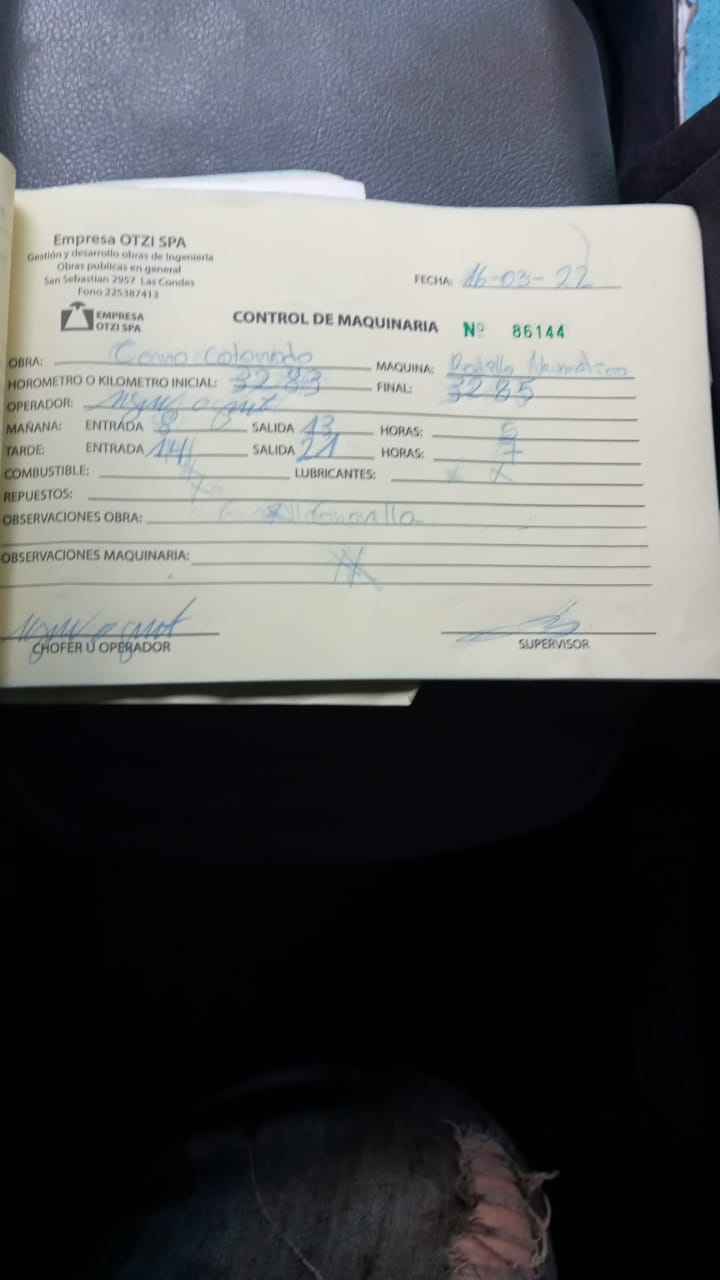 Empresa OTZI SPA
Gestión y desarrollo obras de Ingeniería
Obras publicas en general
San Sebastian 2957 Las Condes
Fono 225387413
FECHA: 16-03-22
EMPRESA
OTZI SPA
CONTROL DE MAQUINARIA Nº 86144
OBRA: Cerro Colorado MAQUINA: Rodillo Neumatico
HOROMETRO O KILOMETRO INICIAL: 3283 FINAL: 3285
OPERADOR:
MAÑANA: ENTRADA 8 SALIDA 13 HORAS: 5
TARDE: ENTRADA 14 SALIDA 21 HORAS: 7
COMBUSTIBLE: LUBRICANTES:
REPUESTOS:
OBSERVACIONES OBRA:
OBSERVACIONES MAQUINARIA:
CHOFER U OPERADOR SUPERVISOR